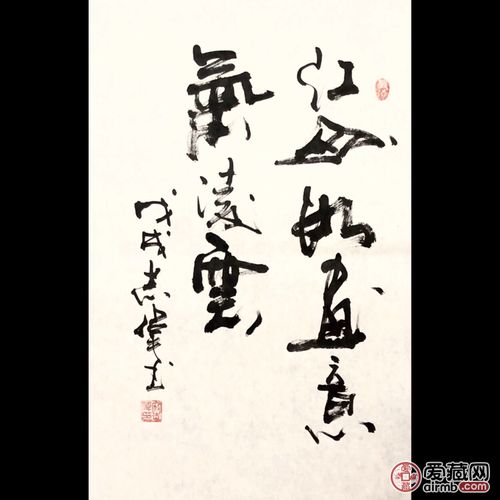 江山如画意
氣凌雲
戊戌志偉书
爱藏网
airmb.com